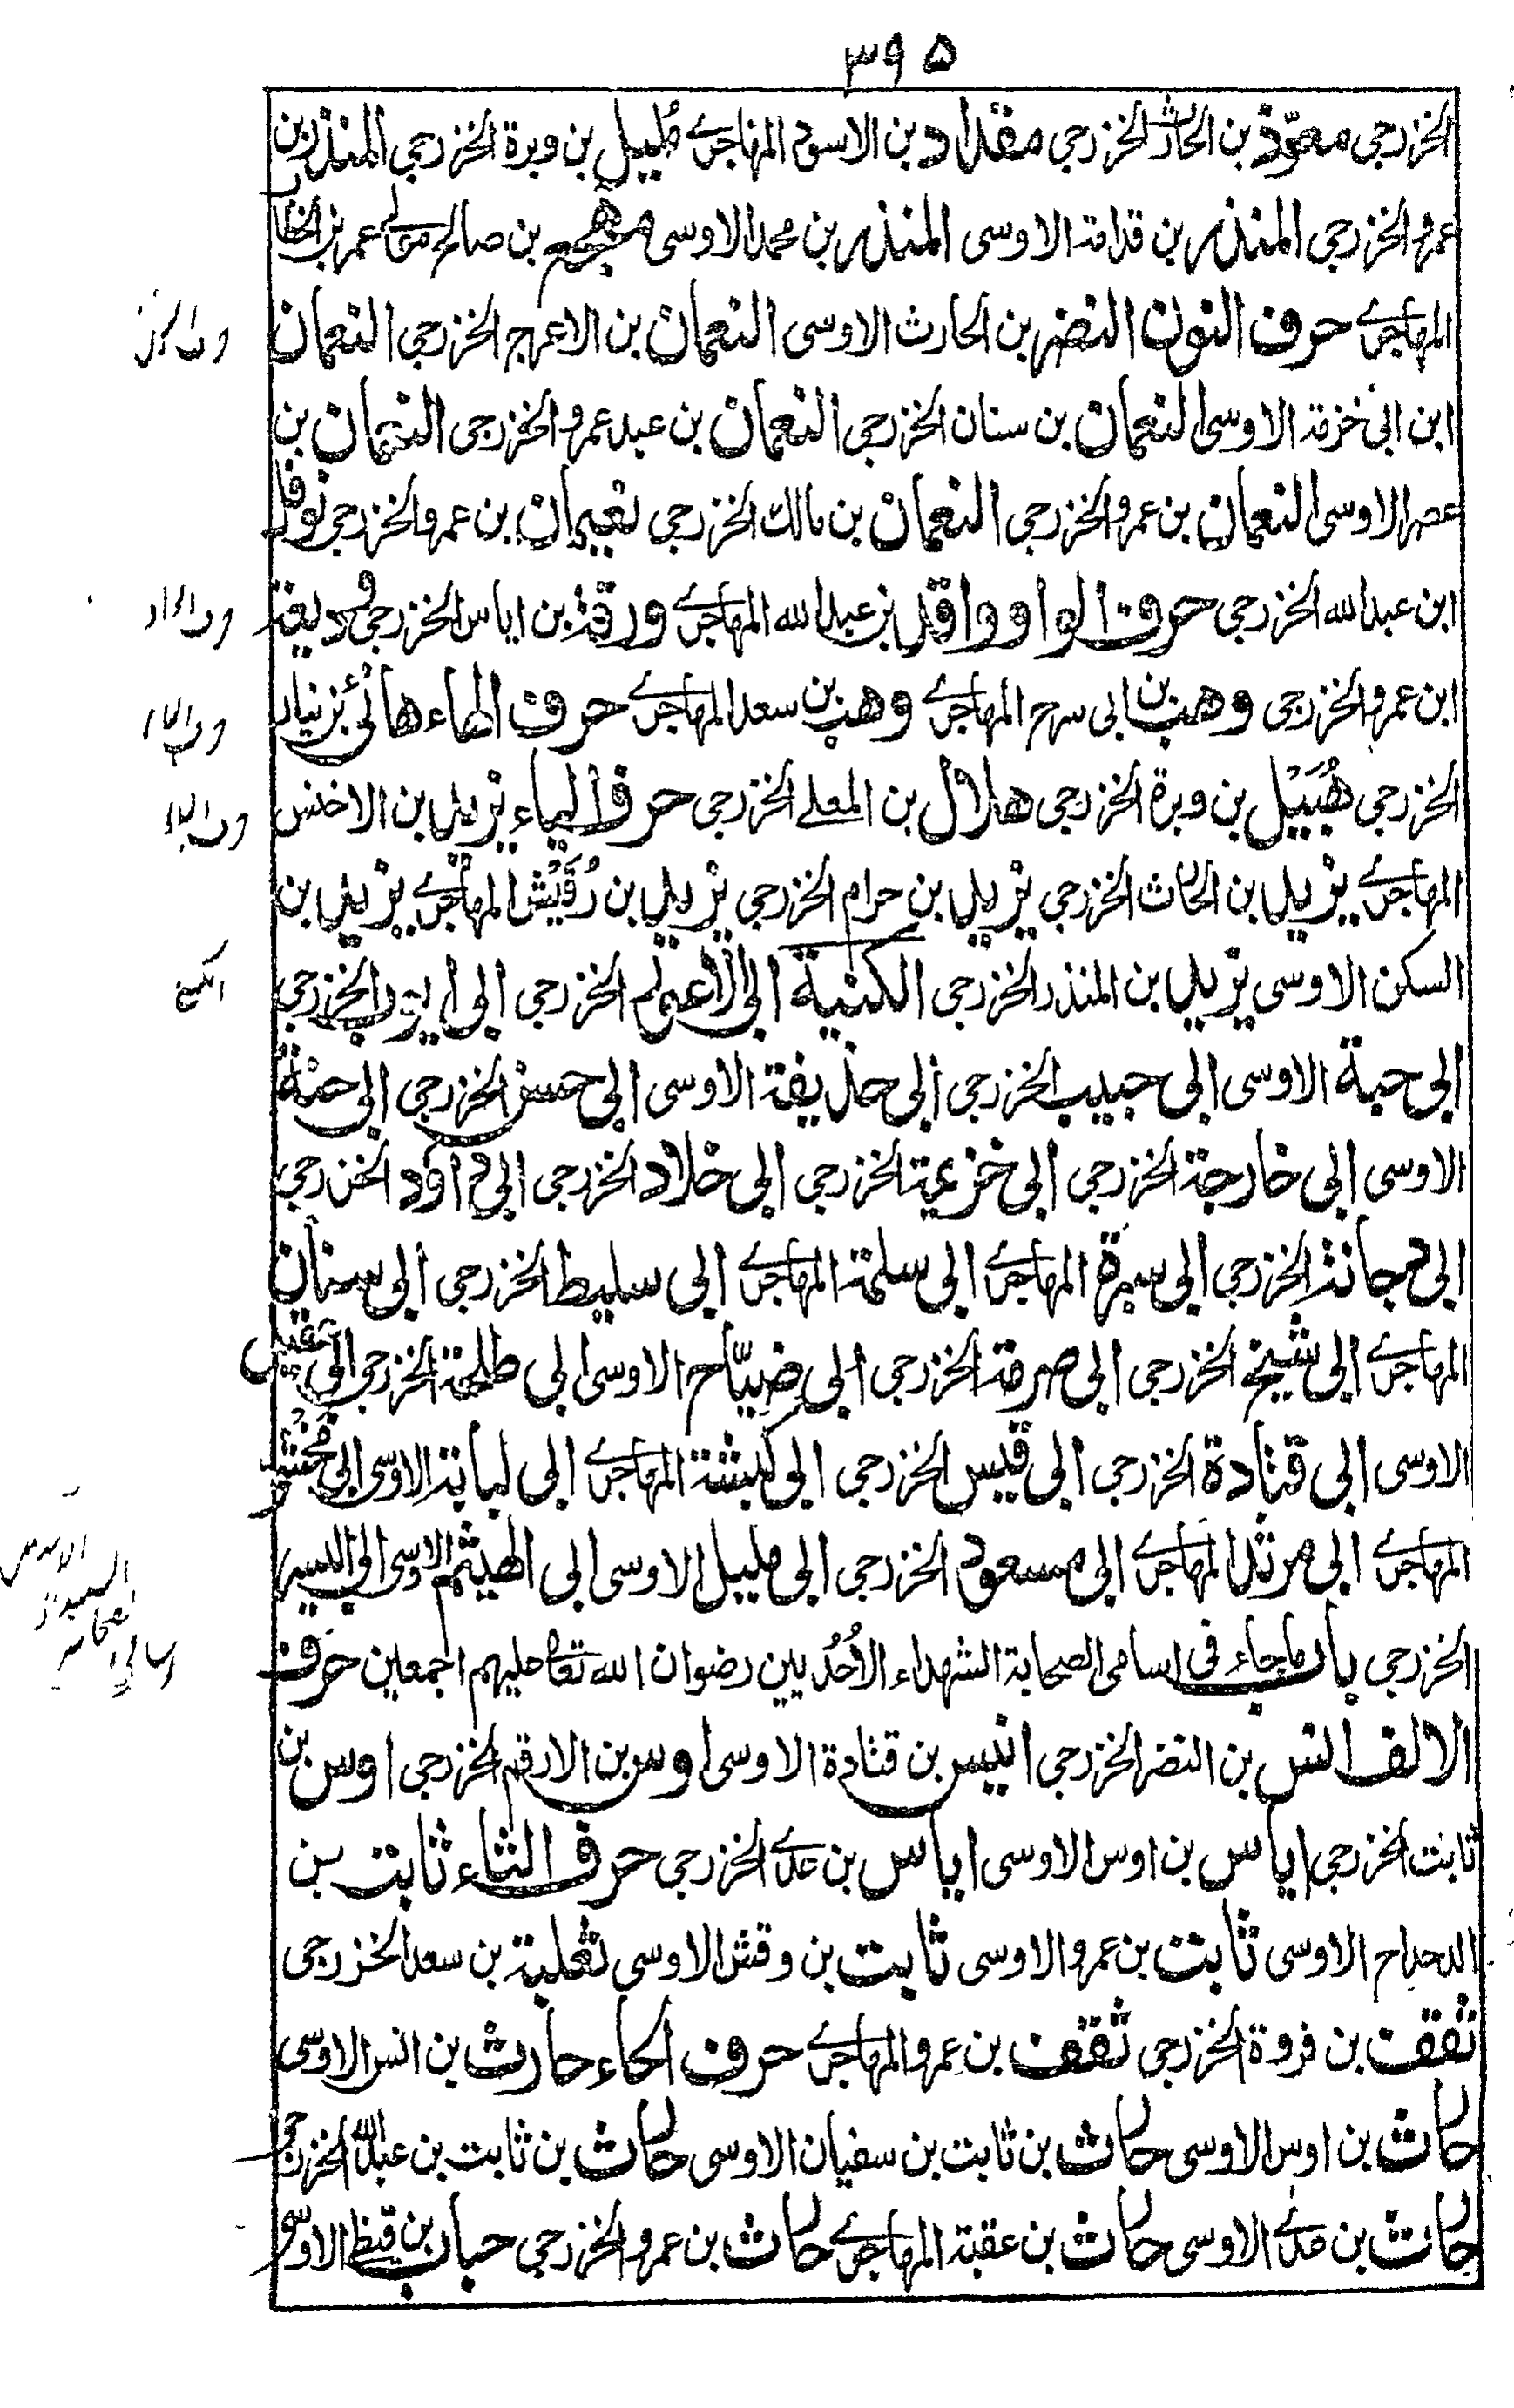 ۳۹۵
الخزرجي معوّذ بن الحارث الخزرجي مقداد بن الاسود المهاجري مليل بن وبرة الخزرجي المنذر بن
عمرو الخزرجي المنذر بن قدامة الاوسى المنذر بن محمد الاوسى مهجع بن صالح مولى عمر بن الخطاب
المهاجري حرف النون النضر بن الحارث الاوسى النعمان بن الاعرج الخزرجي النعمان
ابن ابى خزمة الاوسى النعمان بن سنان الخزرجي النعمان بن عبد عمرو الخزرجي النعمان بن
عصر الاوسى النعمان بن عمرو الخزرجي النعمان بن مالك الخزرجي نعيمان بن عمرو الخزرجي نوفل
ابن عبد الله الخزرجي حرف الواو واقد بن عبد الله المهاجري ورقة بن اياس الخزرجي وديعة
ابن عمرو الخزرجي وهب بن ابى سرح المهاجري وهب بن سعد المهاجري حرف الهاء هانئ بن نيار
الخزرجي هُبَيْل بن وبرة الخزرجي هلال بن المعلے الخزرجي حرف الياء يزيد بن الاخنس
المهاجري يزيد بن الحارث الخزرجي يزيد بن حرام الخزرجي يزيد بن رُقَيْش المهاجري يزيد بن
السكن الاوسى يزيد بن المنذر الخزرجي الكنية ابى الاعور الخزرجي ابى ايوب الخزرجي
ابى حبة الاوسى ابى حبيب الخزرجي ابى حذيفة الاوسى ابى حسن الخزرجي ابى حنة
الاوسى ابى خارجة الخزرجي ابى خزيمة الخزرجي ابى خلاد الخزرجي ابى داود الخزرجي
ابى دجانة الخزرجي ابى سبرة المهاجري ابى سلمة المهاجري ابى سليط الخزرجي ابى سنان
المهاجري ابى شيخ الخزرجي ابى صرمة الخزرجي ابى ضيّاح الاوسى ابى طلحة الخزرجي ابى عقيل
الاوسى ابى قتادة الخزرجي ابى قيس الخزرجي ابى كبشة المهاجري ابى لبابة الاوسى ابى مخشي
المهاجري ابى مرثد المهاجري ابى مسعود الخزرجي ابى مليل الاوسى ابى الهيثم الاوسى ابى اليسر
الخزرجي باب ماجاء فى اسامى الصحابة الشهداء الاُحُديين رضوان الله تعالى عليهم اجمعين حرف
الالف انس بن النضر الخزرجي انيس بن قتادة الاوسى اوس بن الارقم الخزرجي اوس بن
ثابت الخزرجي اياس بن اوس الاوسى اياس بن عدي الخزرجي حرف الثاء ثابت بن
الدحداح الاوسى ثابت بن عمرو الاوسى ثابت بن وقش الاوسى ثعلبة بن سعد الخزرجي
ثقف بن فروة الخزرجي ثقف بن عمرو المهاجري حرف الحاء حارث بن انس الاوسى
حارث بن اوس الاوسى حارث بن ثابت بن سفيان الاوسى حارث بن ثابت بن عبد الله الخزرجي
حارث بن عدي الاوسى حارث بن عقبة المهاجري حارث بن عمرو الخزرجي حباب بن قيظي الاوسى
حرف النون
حرف الواو
حرف الهاء
حرف الياء
الكنية